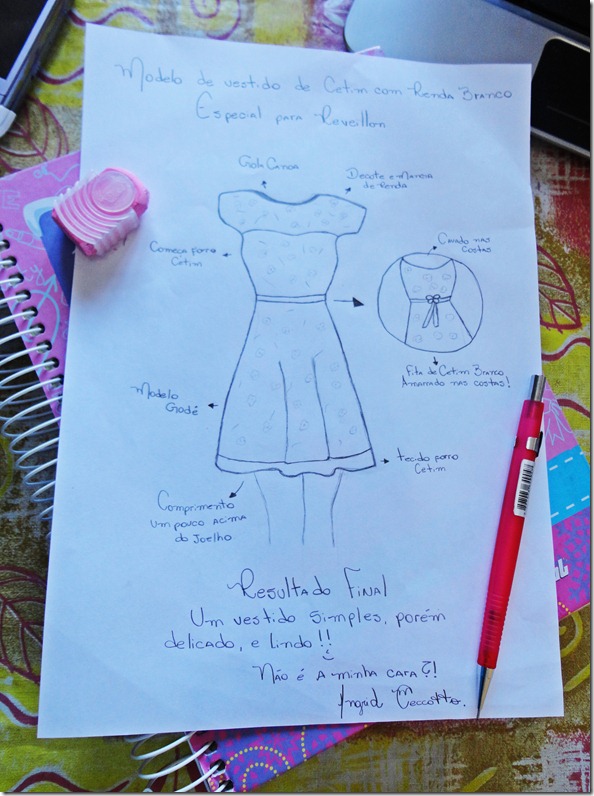 Modelo de vestido de Cetim com Renda Branco
Especial para Reveillon
Gola Canoa
Decote e Manga
de Renda
Começa forro
Cetim
Cavado nas
Costas
Fita de Cetim Branco
Amarrado nas costas!
Modelo
Godê
tecido forro
Cetim
Comprimento
um pouco acima
do Joelho
Resultado Final
Um vestido simples, porém
delicado, e lindo!!
Não é a minha cara?!
Ingrid